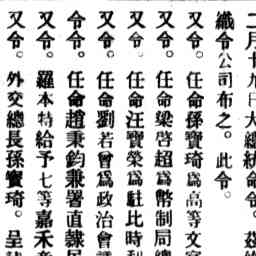 二月十九日大總統命令。茲
織令公司布之。此令。
又令。任命孫寶琦爲高等文官
又令。任命梁啓超爲幣制局總
又令。任命汪寶榮爲駐比時利
又令。任命劉若曾爲政治會議
令令。任命趙秉鈞兼署直隸民
又令。羅本特給予七等嘉禾章
又令。外交總長孫寶琦。呈